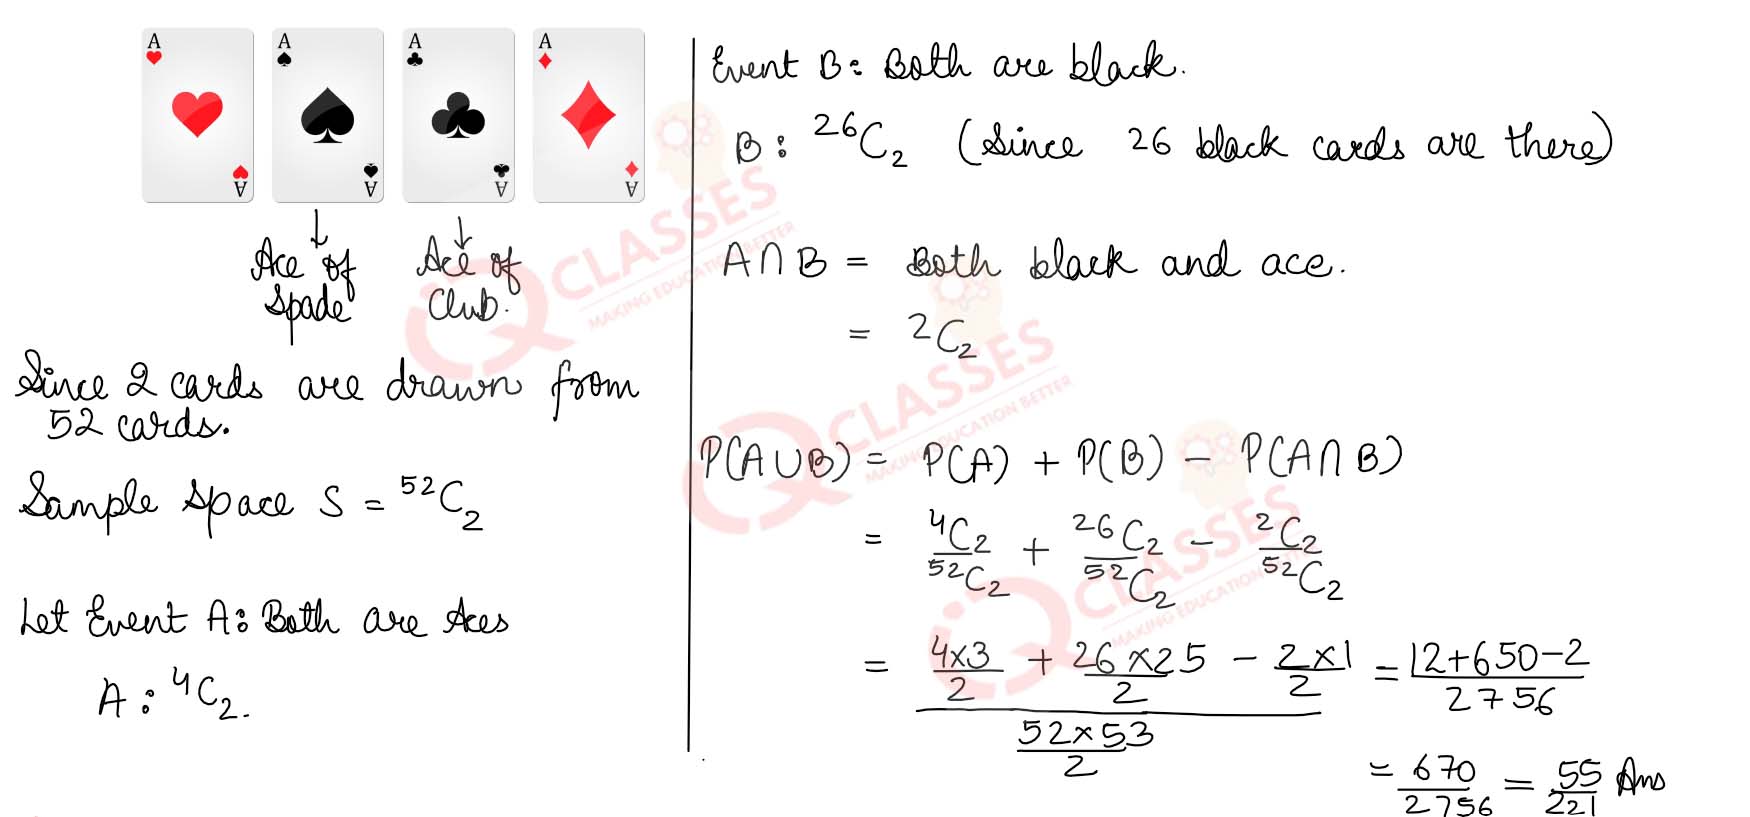 A A A A
A A A A
Ace of Spade
Ace of Club.
Since 2 cards are drawn from
52 cards.
Sample space S = ⁵²C₂
Let Event A: Both are Aces
A : ⁴C₂.
Event B: Both are black.
B : ²⁶C₂ (Since 26 black cards are there)
A∩B = Both black and ace.
= ²C₂
P(A∪B) = P(A) + P(B) - P(A∩B)
= ⁴C₂/⁵²C₂ + ²⁶C₂/⁵²C₂ - ²C₂/⁵²C₂
= (4×3/2 + 26×25/2 - 2×1/2)/(52×53/2) = (12+650-2)/2756
= 670/2756 = 55/221 Ans
QCLASSES
MAKING EDUCATION BETTER
QCLASSES
MAKING EDUCATION BETTER
QCLASSES
MAKING EDUCATION BETTER